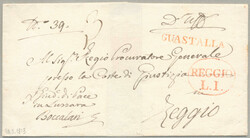 N.º 39.
D'Uff.º
GUASTALLA
Al Sig.r Regio Procuratore Generale
presso la Corte di Giustizia
REGGIO
L.I.
Giud. di Pace
in Luzzara
Reggio